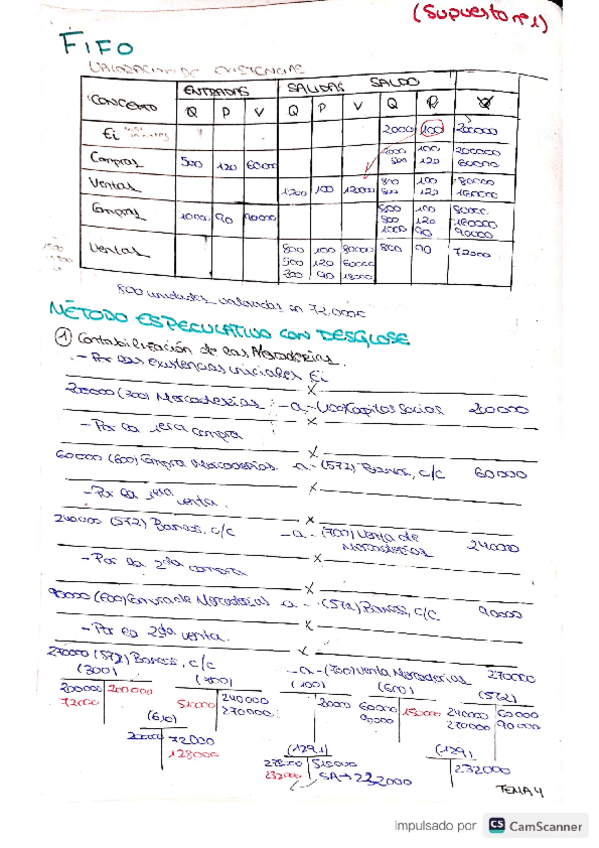 (Supuesto nº1)
FIFO
VALORACIÓN DE EXISTENCIAS
CONCEPTO ENTRADAS SALIDAS SALDO
Q P V Q P V Q P V
Ei 2000 100 200000
Compras 500 120 60000 2000 100 200000
500 120 60000
Ventas 1200 100 120000 800 100 80000
500 120
Compras 1000 90 90000 800 100 80000
500 120
1000 90 90000
Ventas 800 100 80000 800 90 72000
500 120 60000
200 90 18000
800 unidades valoradas en 72.000€
MÉTODO ESPECULATIVO CON DESGLOSE
① Contabilización de las Mercaderías.
- Por las existencias iniciales Ei
x
200000 (300) Mercaderías -a- (100) Capital Social 200000
x
- Por la 1era compra
x
60000 (600) Compra Mercaderías -a- (572) Bancos, c/c 60000
x
- Por la 1era venta.
x
240000 (572) Bancos, c/c -a- (700) Venta de Mercaderías 24000
x
- Por la 2da compra
x
90000 (600) Compra de Mercaderías a - (572) Bancos, c/c. 90000
x
- Por la 2da venta.
x
270000 (572) Bancos, c/c -a- (700) Venta Mercaderías 270000
(300) (700) (100) (600) (572)
200000 200000 240000 60000 150000 240000 60000
72000 510000 270000 90000 270000 90000
(610)
72000
128000
(129.1) (129)
510000
232000 SA→ 232000 232000
TEMA 4
impulsado por CS CamScanner